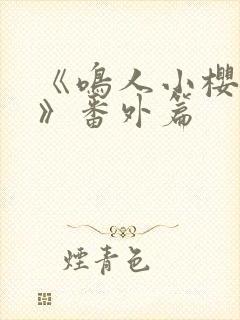 《鳴人小櫻
》番外篇
煙青色